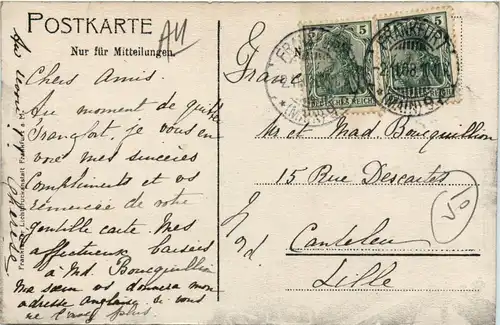 POSTKARTE
Nur für Mitteilungen.
Chers Amis.
Au moment de quitter
Francfort j'y
vous mes sincères
Compliments et vs
remercie de votre
gentille carte. Mes
affectueux baisers
à Md. Boucquillion
Ma sœur vs donnera mon
adresse anglaise si vous
ne l'avez plus.
Frankfurter Lichtdruckanstalt Frankfurt a. M.
France
FRANKFURT
(MAIN) 9
FRANKFURT
(MAIN) 9
5
5
DEUTSCHES REICH
Mr et Mad. Boucquillion
15 Rue Descartes
Canteleu
Lille
50